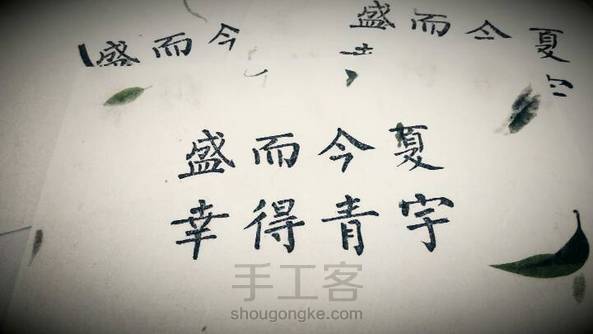 盛而今
盛而今夏
盛而今夏
幸得青宇
手工客
shougongke.com